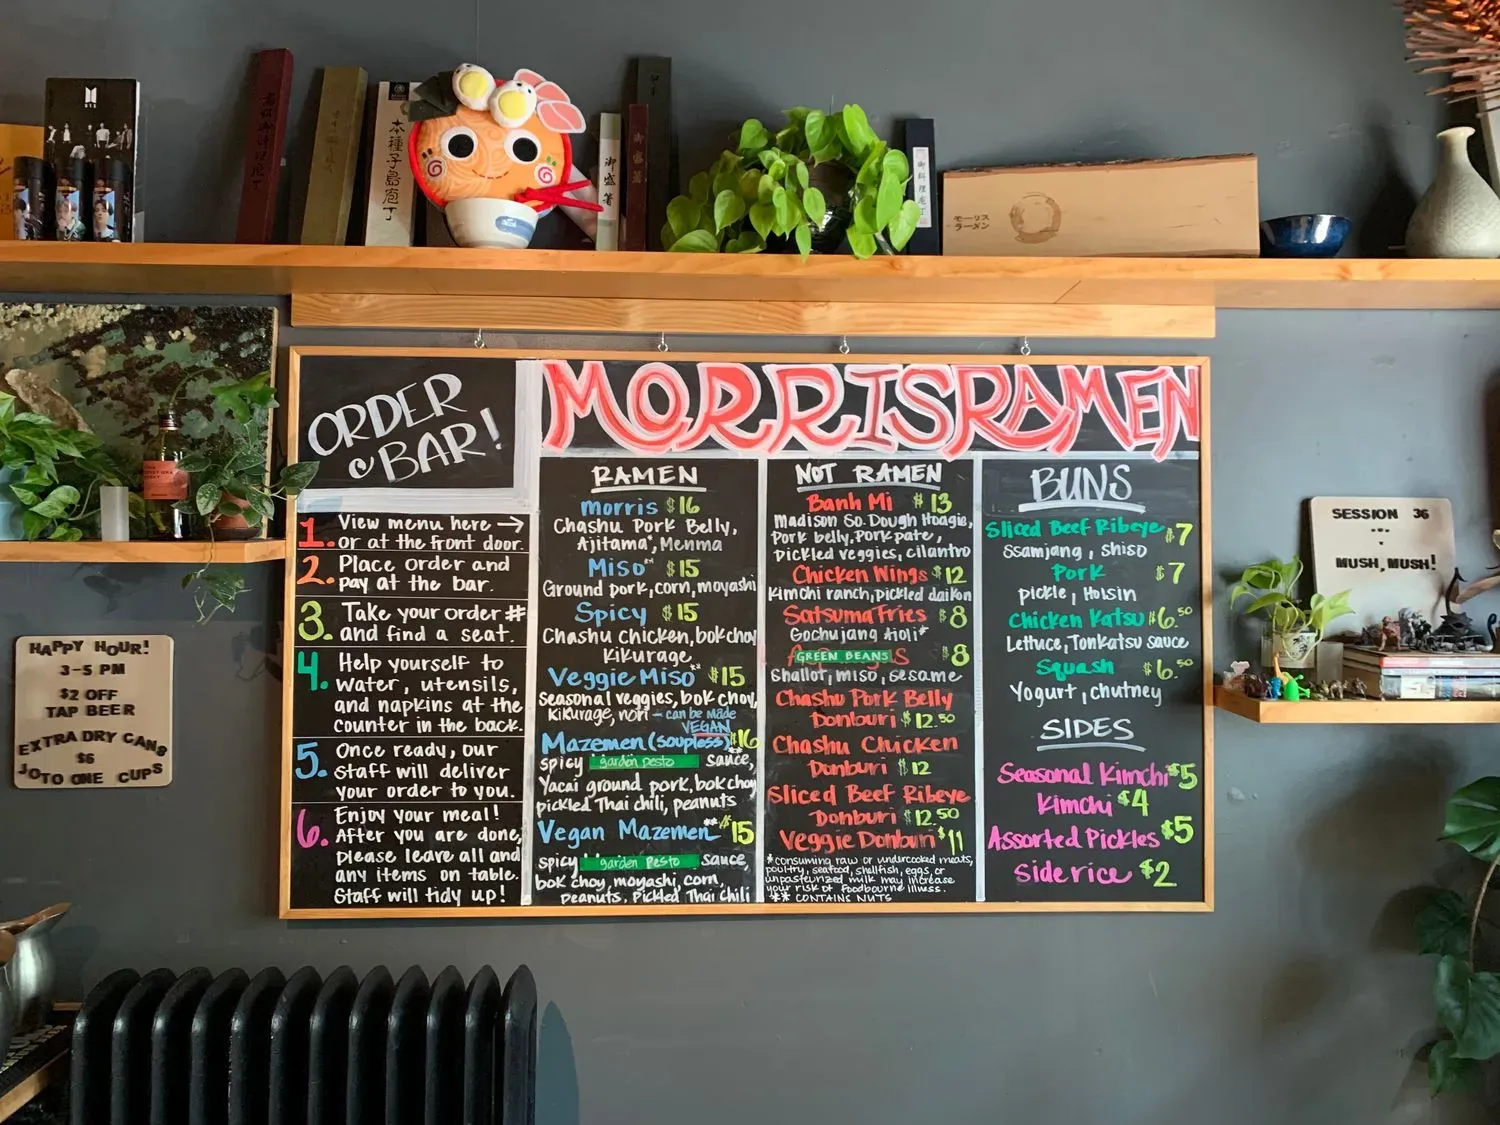 BTS
本種子島庖丁
御盛箸
御盛箸
御料理庖丁
モーリス
ラーメン
ORDER
@ BAR!
1. View menu here →
or at the front door.
2. Place order and
pay at the bar.
3. Take your order #
and find a seat.
4. Help yourself to
water, utensils,
and napkins at the
counter in the back.
5. Once ready, our
staff will deliver
your order to you.
6. Enjoy your meal!
After you are done,
please leave all and
any items on table.
Staff will tidy up!
MORRISRAMEN
RAMEN
morris $16
Chashu Pork Belly,
Ajitama*, Menma
Miso** $15
Ground pork, corn, moyashi
Spicy $15
Chashu chicken, bok choy
Kikurage,
Veggie Miso** $15
Seasonal veggies, bok choy,
Kikurage, nori - can be made
VEGAN
Mazemen (soupless)** $16
spicy garden pesto sauce,
Yacai ground pork, bok choy
pickled Thai chili, peanuts
Vegan Mazemen** $15
spicy garden Pesto sauce,
bok choy, moyashi, corn,
peanuts, Pickled Thai Chili
NOT RAMEN
Banh Mi $13
Madison So. Dough Hoagie,
Pork belly, Pork pate,
pickled veggies, cilantro
Chicken Wings $12
Kimchi ranch, pickled daikon
Satsuma Fries $8
Gochujang Aioli*
GREEN BEANS $8
Shallot, miso, sesame
Chashu Pork Belly
Donburi $12.50
Chashu Chicken
Donburi $12
Sliced Beef Ribeye
Donburi $12.50
Veggie Donburi $11
*consuming raw or undercooked meats,
poultry, seafood, shellfish, eggs, or
unpasteurized milk may increase
your risk of foodbourne illness.
** CONTAINS NUTS
BUNS
Sliced Beef Ribeye $7
Ssamjang, shiso
Pork $7
pickle, Hoisin
Chicken Katsu $6.50
Lettuce, Tonkatsu sauce
Squash $6.50
Yogurt, chutney
SIDES
Seasonal Kimchi $5
Kimchi $4
Assorted Pickles $5
Side rice $2
HAPPY HOUR!
3-5 PM
$2 OFF
TAP BEER
EXTRA DRY CANS
$6
JOTO ONE CUPS
SESSION 36
MUSH, MUSH!